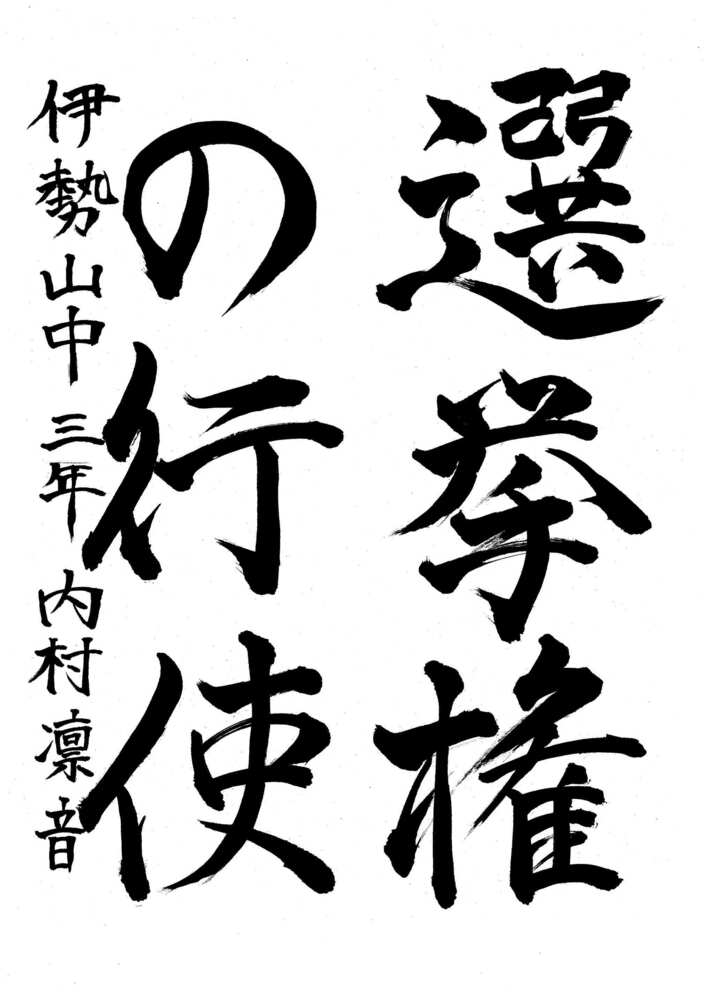 選挙権
の行使
伊勢山中三年内村凛音